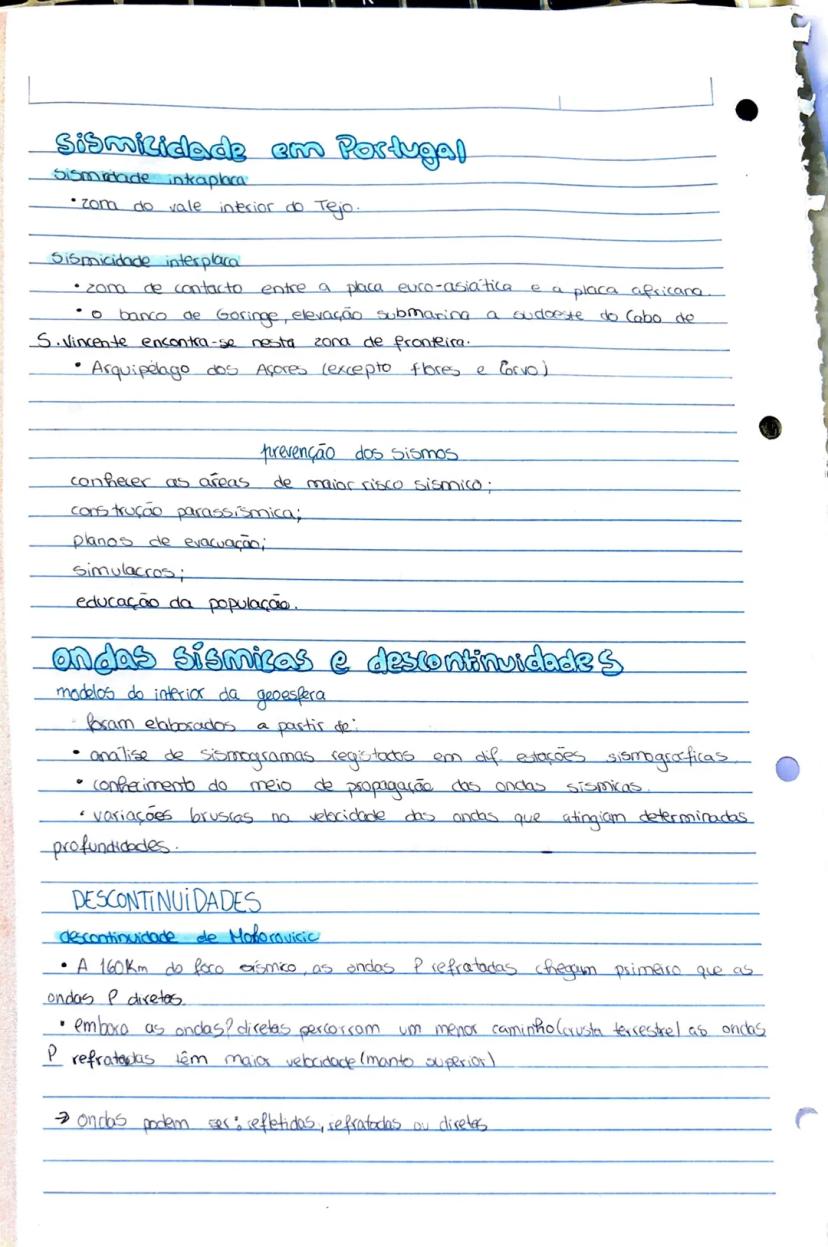 sismicidade em Portugal
sismidade intraplaca
• zona do vale inferior do Tejo.
sismicidade interplaca
• zona de contacto entre a placa euro-asiática e a placa africana.
• o banco de Goringe, elevação submarina a sudoeste do Cabo de
S. Vincente encontra-se nesta zona de fronteira.
• Arquipélago dos Açores (excepto flores e Corvo)
prevenção dos sismos
conhecer as áreas de maior risco sísmico;
construção parassísmica;
planos de evacuação;
simulacros;
educação da população.
ondas sísmicas e descontinuidades
modelos do interior da geoesfera
foram elaborados a partir de:
• análise de sismogramas registados em dif. estações sismográficas.
• conhecimento do meio de propagação das ondas sísmicas.
• variações bruscas na velocidade das ondas que atingiam determinadas
profundidades.
DESCONTINUIDADES
descontinuidade de Mohorovicic
• A 160Km do foco sísmico, as ondas P refratadas chegam primeiro que as
ondas P diretas.
• embora as ondas P diretas percorram um menor caminho (crusta terrestre) as ondas
P refratadas têm maior velocidade (manto superior)
→ ondas podem ser: refletidas, refratadas ou diretas